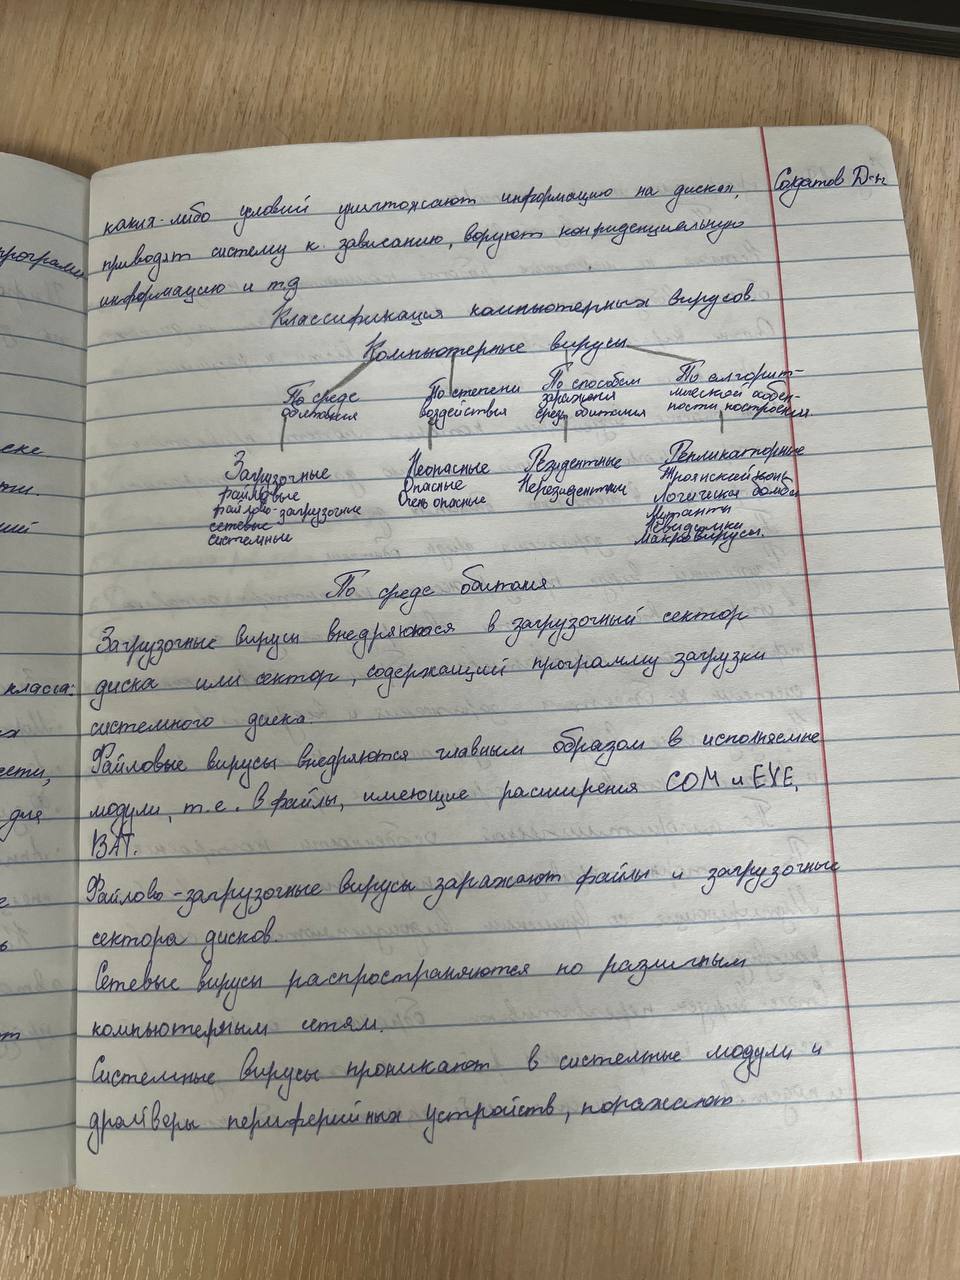 каких-либо условий уничтожают информацию на дисках,
Солдатов Д-н
приводят систему к зависанию, воруют конфиденциальную
информацию и т.д
Классификация компьютерных вирусов.
Компьютерные вирусы
По среде
обитания
По степени
воздействия
По способам
заражения
среды обитания
По алгорит-
мической особен-
ности построения.
Загрузочные
файловые
файлово-загрузочные
сетевые
системные
Неопасные
Опасные
Очень опасные
Резидентные
Нерезидентные
Репликаторные
Троянский конь
Логическая бомба
Мутанты
Невидимки
Макровирусы.
По среде обитания
Загрузочные вирусы внедряются в загрузочный сектор
диска или сектор, содержащий программу загрузки
системного диска.
Файловые вирусы внедряются главным образом в исполняемые
модули, т.е. в файлы, имеющие расширения COM и EXE,
BAT.
Файлово-загрузочные вирусы заражают файлы и загрузочные
сектора дисков.
Сетевые вирусы распространяются по различным
компьютерным сетям.
Системные вирусы проникают в системные модули и
драйверы периферийных устройств, поражают
программ
класса:
для